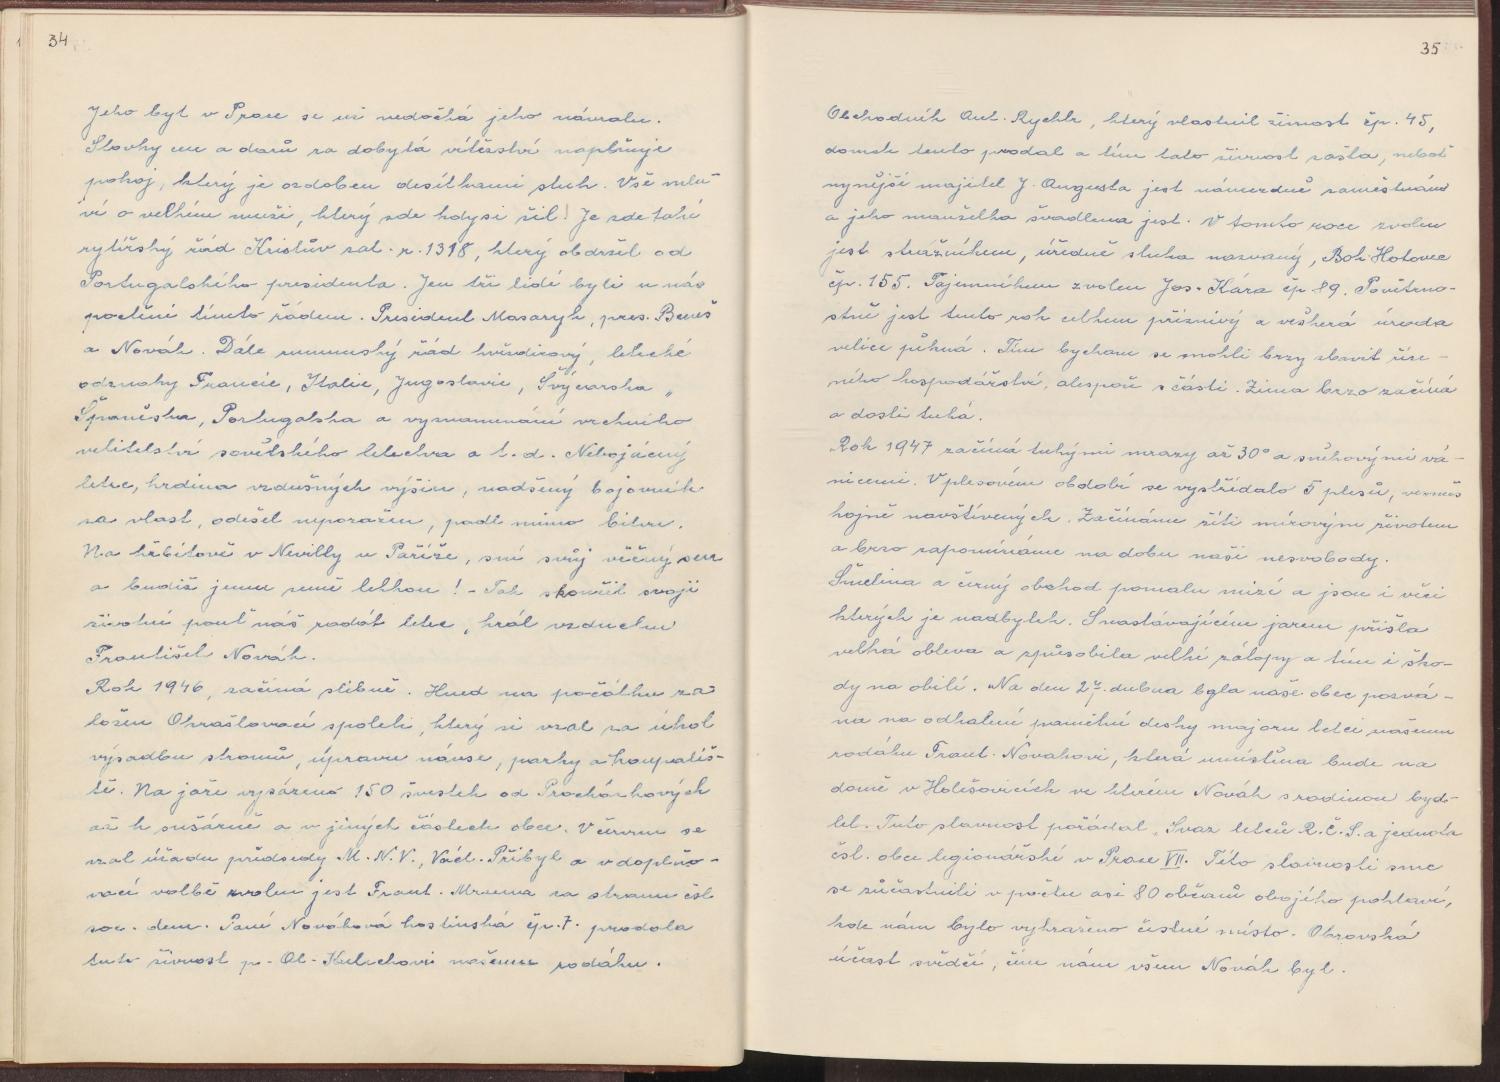 34
Jeho byt v Praze se už nedočká jeho návratu.
Slovky cen a darů za dobytá vítězství naplňuje
pokoj, který je ozdoben desítkami stuh. Vše mlu-
ví o velkém muži, který zde kdysi žil! Je zde také
rytířský řád Kristův zal. r. 1318, který obdržel od
Portugalského presidenta. Jen tři lidé byli u nás
poctěni tímto řádem. President Masaryk, pres. Beneš
a Novák. Dále rumunský řád hvězdicový, letecké
odznaky Francie, Italie, Jugoslavie, Švýcarska,
Španělska, Portugalska a vyznamenání vrchního
velitelství sovětského letectva a t. d. Nebojácný
letec, hrdina vzdušných výšin, nadšený bojovník
za vlast, odešel neporažen, padl mimo bitvu.
Na hřbitově v Nevilly u Paříže, sní svůj věčný sen
a budiž jemu země lehkou! - Tak skončil svoji
životní pouť náš rodák letec, král vzduchu
František Novák.
Rok 1946, začíná slibně. Hned na počátku za-
ložen Okrašlovací spolek, který si vzal za úkol
výsadbu stromů, úpravu návse, parky a koupališ-
tě. Na jaře vysázeno 150 švestek od Procházkových
až k sušárně a v jiných částech obce. V červnu se
vzal úřadu předsedy M.N.V., Václ. Přibyl a v doplňo-
vací volbě zvolen jest Frant. Mrzena za stranu čsl
soc. dem. Paní Nováková hostinská čp. 7. prodala
tuto živnost p. Ol. Kulichovi našemu rodáku.
35
Obchodník Ant. Rychlr, který vlastnil živnost čp. 45,
domek tento prodal a tím tato živnost zašla, neboť
nynější majitel J. Augusta jest námezdně zaměstnán
a jeho manželka švadlena jest. V tomto roce zvolen
jest strážníkem, úředně sluha nazvaný, Boh. Hotovec
čp. 155. Tajemníkem zvolen Jos. Kára čp 89. Povětrno-
stně jest tento rok celkem příznivý a veškerá úroda
velice pěkná. Tím bychom se mohli brzy zbavit říze-
ného hospodářství, alespoň z části. Zima brzo začíná
a dosti tuhá.
Rok 1947 začíná tuhými mrazy až 30° a sněhovými vá-
nicemi. V plesovém období se vystřídalo 5 plesů, vesměs
hojně navštívených. Začínáme žíti mírovým životem
a brzo zapomínáme na dobu naší nesvobody.
Šmelina a černý obchod pomalu mizí a jsou i věci
kterých je nadbytek. S nastávajícím jarem přišla
velká obleva a způsobila velké zátopy a tím i ško-
dy na obilí. Na den 27. dubna byla naše obec pozvá-
na na odhalení pamětní desky majoru letci našemu
rodáku Frant. Novákovi, která umístěna bude na
domě v Holešovicích ve kterém Novák s rodinou byd-
lel. Tuto slavnost pořádal „Svaz letců R.Č.S. a jednota
čsl. obce legionářské v Praze VII. Této slavnosti sme
se zůčastnili v počtu asi 80 občanů obojího pohlaví,
kde nám bylo vyhraženo čestné místo. Obrovská
účast svědčí, čím nám všem Novák byl.